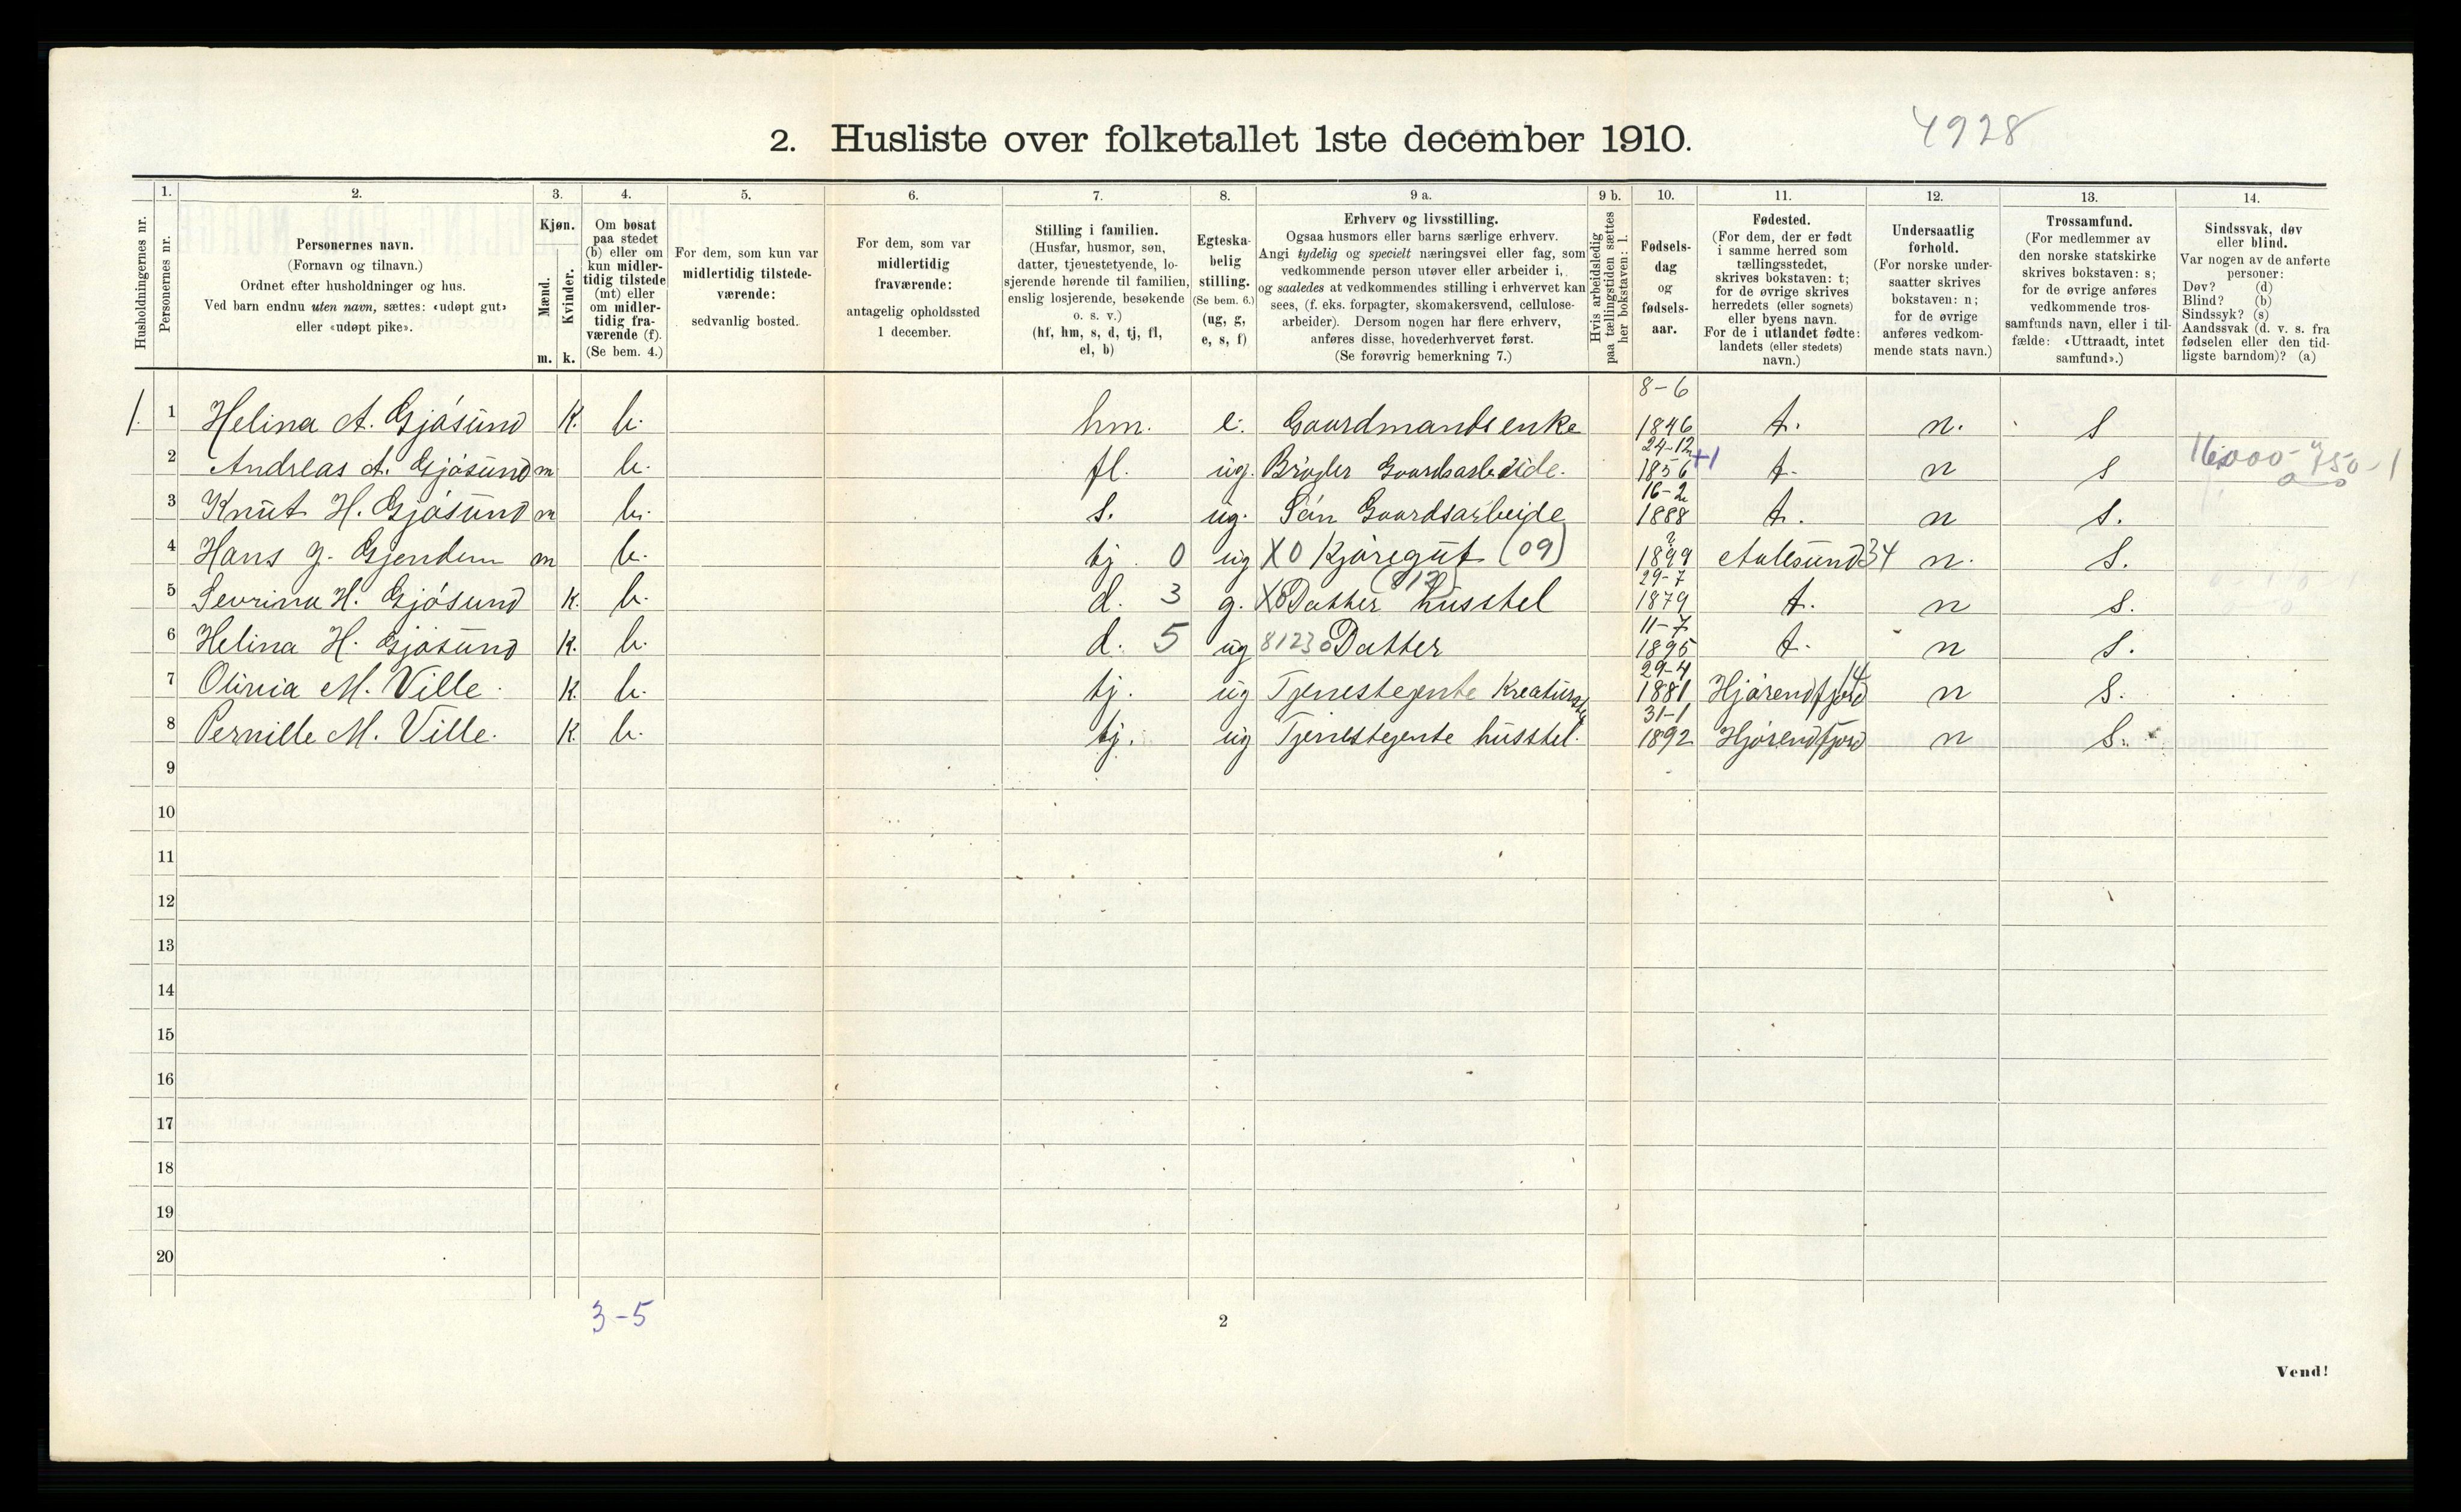 4928
2. Husliste over folketallet 1ste december 1910.
Husholdningernes nr.
1. Personernes nr.
2. Personernes navn. (Fornavn og tilnavn.) Ordnet efter husholdninger og hus. Ved barn endnu uten navn, sættes: «udøpt gut» eller «udøpt pike».
3. Kjøn. Mænd. m. Kvinder. k.
4. Om bosat paa stedet (b) eller om kun midlertidig tilstede (mt) eller om midlertidig fraværende (f). (Se bem. 4.)
5. For dem, som kun var midlertidig tilstedeværende: sedvanlig bosted.
6. For dem, som var midlertidig fraværende: antagelig opholdssted 1 december.
7. Stilling i familien. (Husfar, husmor, søn, datter, tjenestetyende, losjerende hørende til familien, enslig losjerende, besøkende o. s. v.) (hf, hm, s, d, tj, fl, el, b)
8. Egteskabelig stilling. (Se bem. 6.) (ug, g, e, s, f)
9 a. Erhverv og livsstilling. Ogsaa husmors eller barns særlige erhverv. Angi tydelig og specielt næringsvei eller fag, som vedkommende person utøver eller arbeider i, og saaledes at vedkommendes stilling i erhvervet kan sees, (f. eks. forpagter, skomakersvend, cellulosearbeider). Dersom nogen har flere erhverv, anføres disse, hovederhvervet først. (Se forøvrig bemerkning 7.)
9 b. Hvis arbeidsledig paa tællingstiden sættes her bokstaven: l.
10. Fødselsdag og fødselsaar.
11. Fødested. (For dem, der er født i samme herred som tællingsstedet, skrives bokstaven: t; for de øvrige skrives herredets (eller sognets) eller byens navn. For de i utlandet fødte: landets (eller stedets) navn.)
12. Undersaatlig forhold. (For norske undersaatter skrives bokstaven: n; for de øvrige anføres vedkommende stats navn.)
13. Trossamfund. (For medlemmer av den norske statskirke skrives bokstaven: s; for de øvrige anføres vedkommende trossamfunds navn, eller i tilfælde: «Uttraadt, intet samfund».)
14. Sindssvak, døv eller blind. Var nogen av de anførte personer: Døv? (d) Blind? (b) Sindssyk? (s) Aandssvak (d. v. s. fra fødselen eller den tidligste barndom)? (a)
1. 1 Helina A. Gjøsund K. b. hm. e. Gaardmandsenke 8-6 1846 t. n. s
2 Andreas A. Gjøsund m b. fl. ug. Brøder Gaardsarbeide. 24-12 1856 +1 t. n s 16000-750-1
3 Knut H. Gjøsund m b. s. ug. Søn Gaardsarbeide 16-2 1888 t. n s.
4 Hans J. Gjendem m b. tj. 0 ug X0 Kjøregut (09) 1899 Aalesund 34 n. s.
5 Sevrina H. Gjøsund K. b. d. 3 g. X8 Datter (812) husstel 29-7 1879 t. n s.
6 Helina H. Gjøsund K. b. d. 5 ug 8123 Datter 11-7 1895 t. n s.
7 Olivia M. Ville. K. b. tj. ug Tjenestejente Kreaturstel 29-4 1881 Hjørendfjord 14 n s.
8 Pernille M. Ville. K. b. tj. ug Tjenestejente husstel. 31-1 1892 Hjørendfjord n s.
9
10
11
12
13
14
15
16
17
18
19
20
3-5
2
Vend!